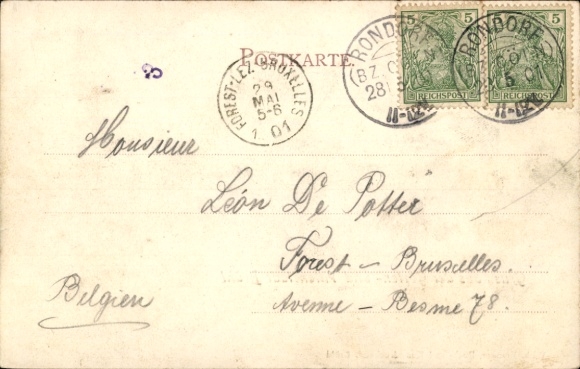 POSTKARTE.
5 5
REICHSPOST
5 5
REICHSPOST
RONDORF
28
11-12V
RONDORF
11-12V
FOREST-LEZ-BRUXELLES
29
MAI
5-6
1901
8
Monsieur
Léon De Potter
Forest - Bruxelles.
Belgien
Avenue - Besme 78.